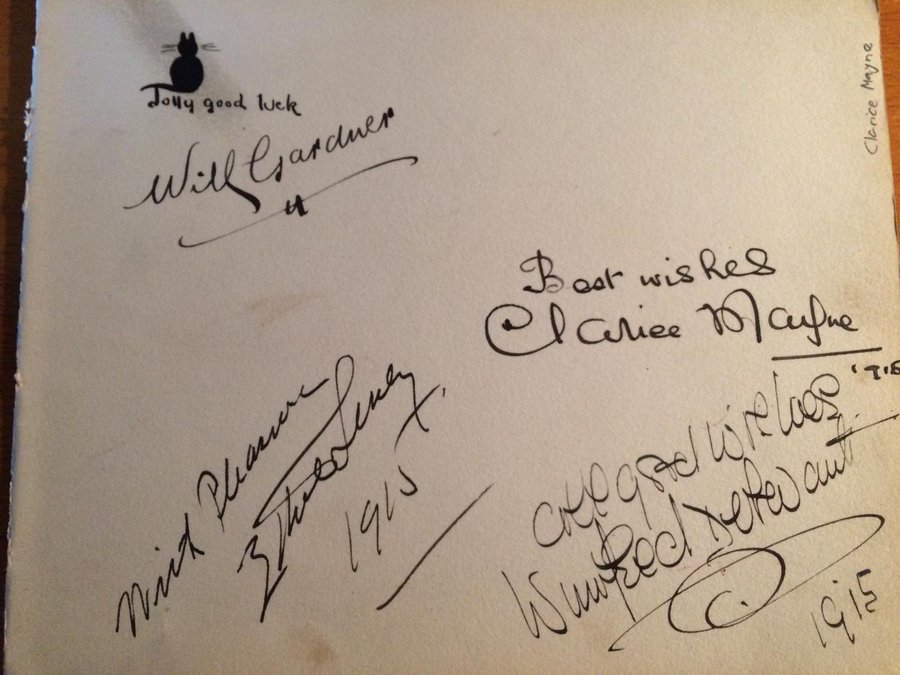 Jolly good luck
Will Gardner
Clarice Mayne
Best wishes
Clarice Mayne
'15
With Pleasure
1915
All good wishes
Winifred Delevanti
1915